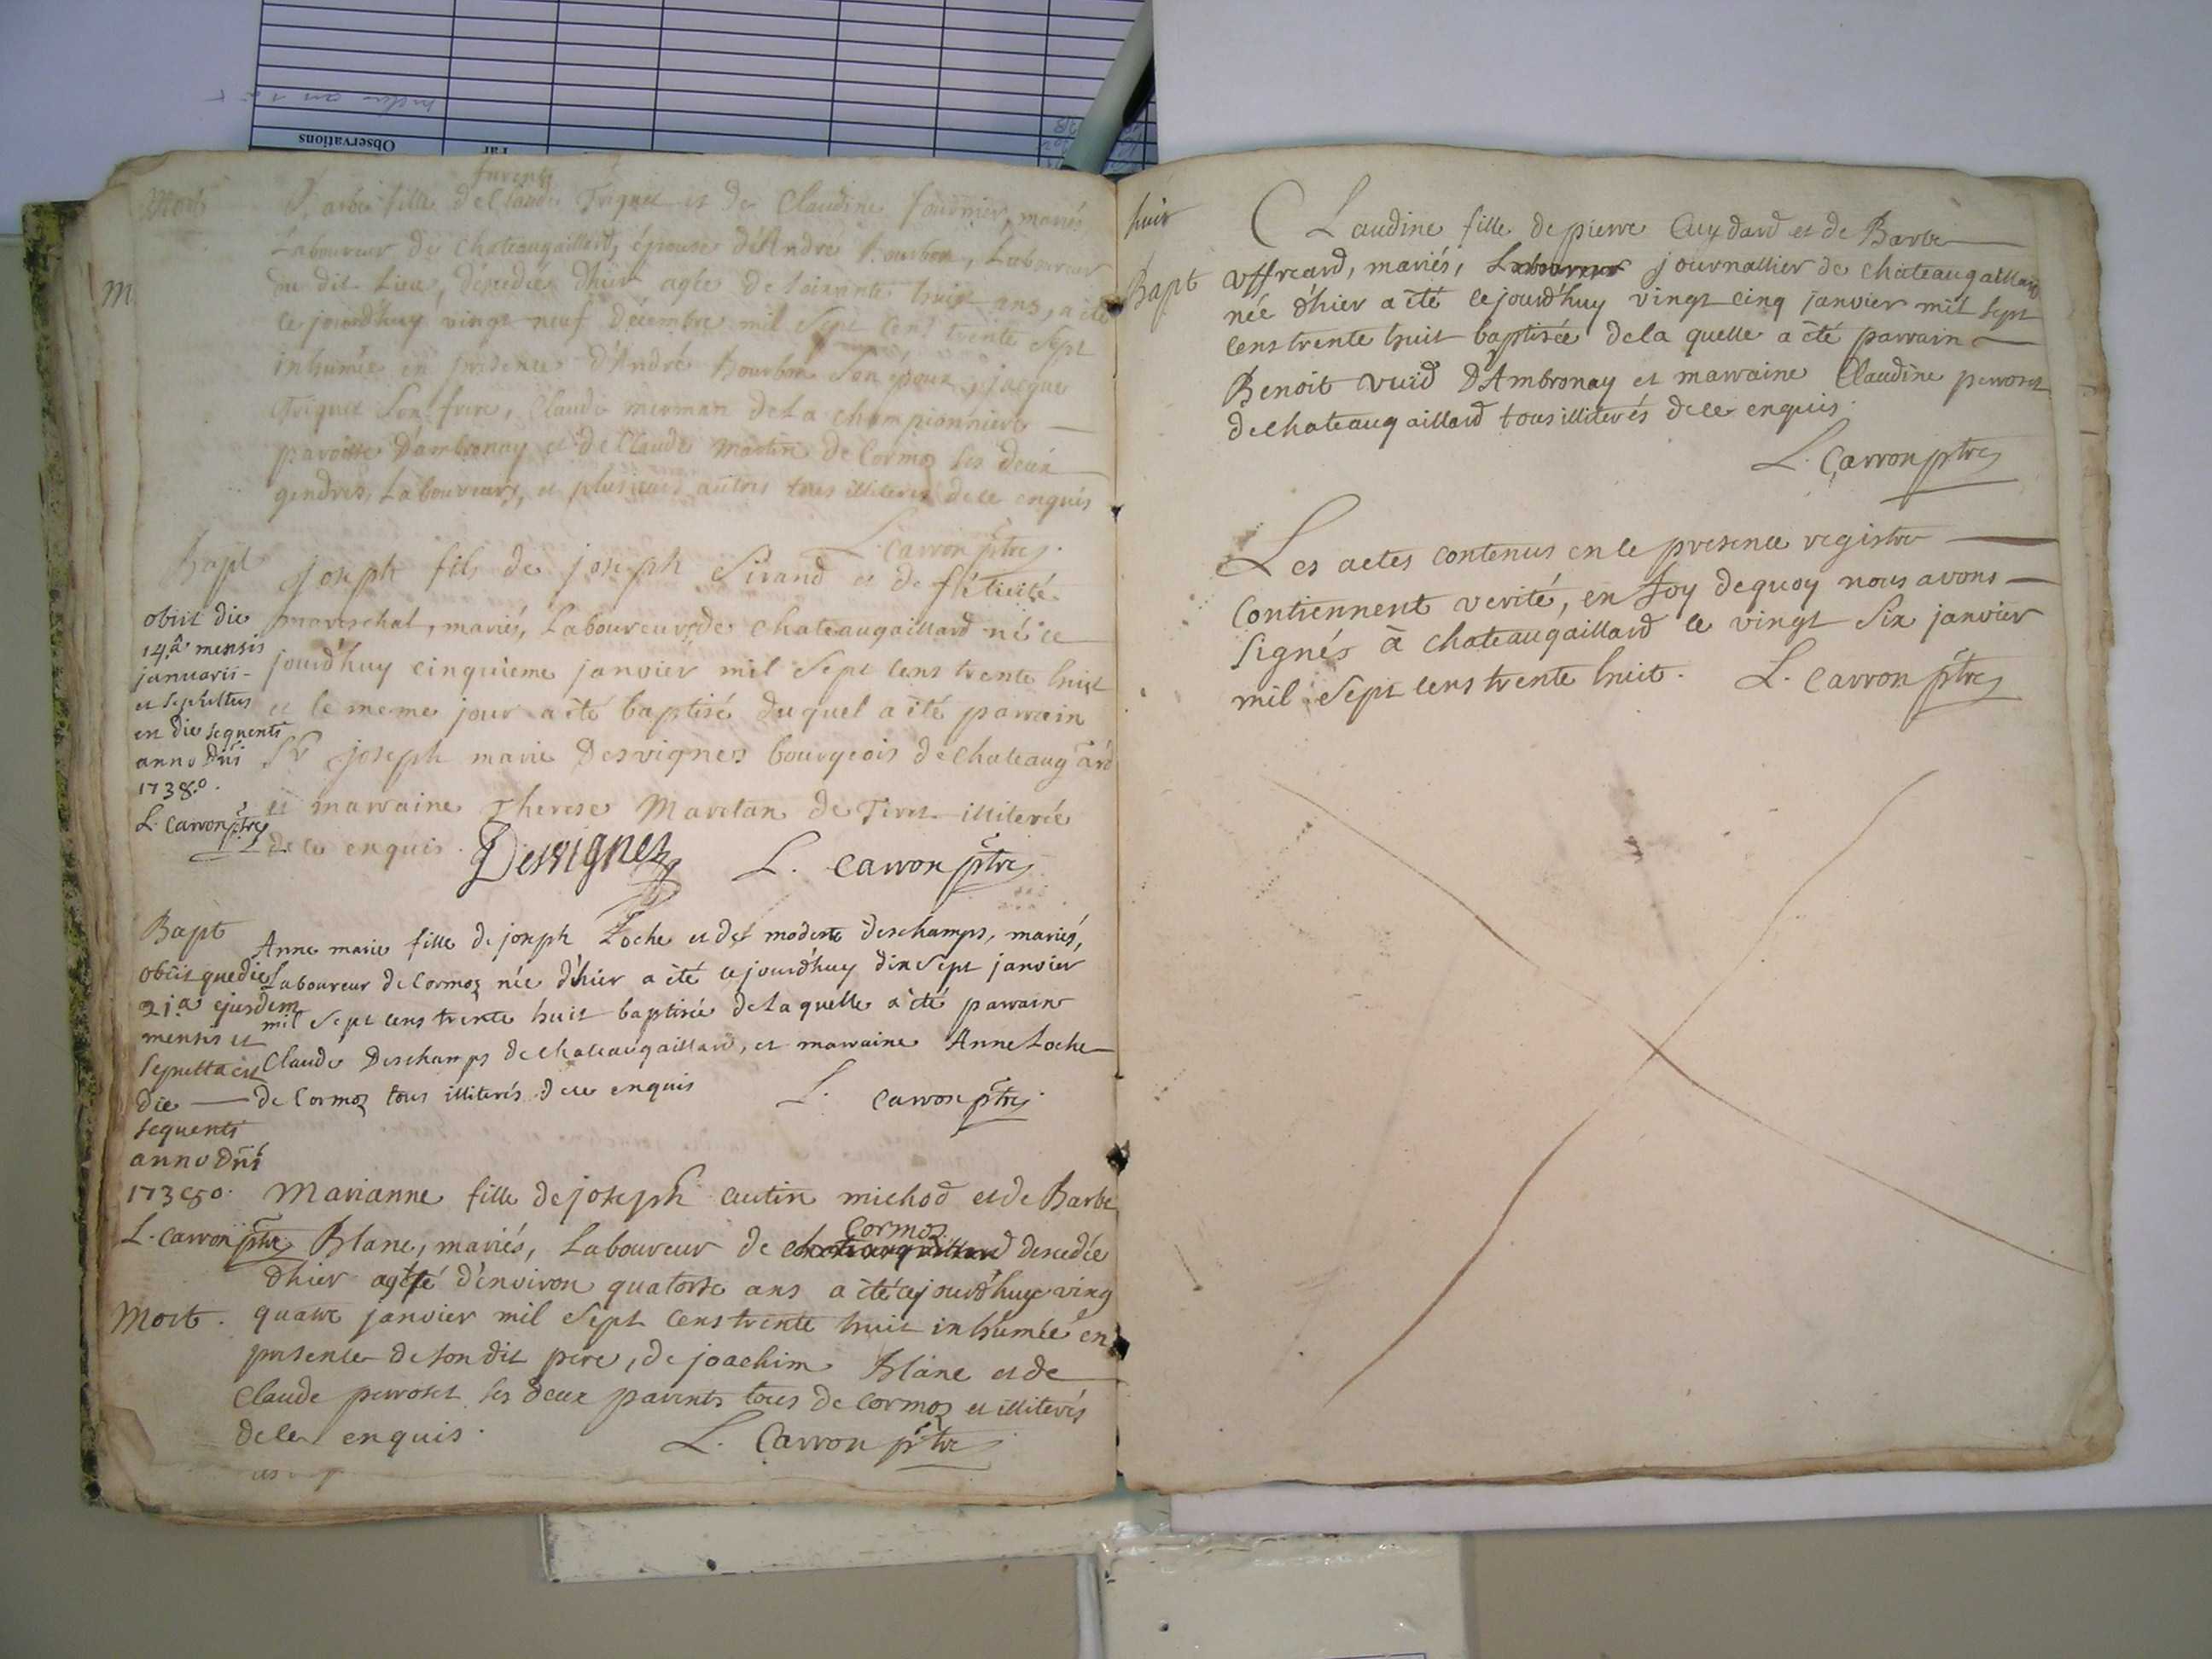 Observations
Par
Mort
Barbe fille de Claude Triquet et de Claudine fournier, mariés
Laboureur de Chateaugaillard, épouse d'André Bourbon, Laboureur
du dit Lieu, décedée d'hier agée de soixante huit ans, a été
ce jourd'huy vingt neuf décembre mil sept cens trente sept
inhumée en presence d'André Bourbon son époux, jacque
Triquet son frere, Claude merman de La championniere
paroisse d'ambronay et de Claude Martin de Cormoz ses deux
gendres, Laboureurs, et plusieurs autres tous illiterés de ce enquis
L. Carron ptre
Bapt
joseph fils de joseph Sirand et de félicité
mareschal, mariés, Laboureurs de chateaugaillard né ce
jourd'huy cinquieme janvier mil sept cens trente huit
et le meme jour a été baptisé duquel a été parrain
Sr joseph marie Desvignes bourgeois de chateaugard
et marraine Therese Marelan de Tiret illiterée
de ce enquis. Desvignes L. carron ptre
obiit die
14.a mensis
januarii
et sepultus
en die sequenti
anno Dni
1738.o
L. carron ptre
Bapt
Anne marie fille de joseph Loche et de modeste deschamps, mariés,
Laboureur de Cormoz née d'hier a été ce jourd'huy dix sept janvier
mil sept cens trente huit baptisée de la quelle a été parrain
Claude Deschamps de chateaugaillard, et marraine Anne Loche
de Cormoz tous illiterés de ce enquis L. carron ptre
obiit que die
21.a ejusdem
mensis et
sepulta est
die
sequenti
anno Dni
1738o.
L. carron ptre
Marianne fille de joseph cutin michod et de Barbe
Blanc, mariés, Laboureur de chateaugaillard Cormoz decedée
d'hier agée d'environ quatorze ans a été ce jourd'huy ving
Mort.
quatre janvier mil sept cens trente huit inhumée en
presence de son dit pere, de joachim Blanc et de
Claude perroset ses deux parents tous de cormoz et illiterés
de ce enquis. L. Carron ptre
huit
Bapt
Claudine fille de pierre Cuydard et de Barbe
uffreard, mariés, Laboureur journallier de chateaugaillard
née d'hier a été ce jourd'huy vingt cinq janvier mil sept
cens trente huit baptisée de la quelle a été parrain
Benoit vuid D'Ambronay et marraine Claudine perroset
de chateaugaillard tous illiterés de ce enquis.
L. Carron ptre
Les actes contenus en le presence registre
contiennent verité, en foy de quoy nous avons
signés à chateaugaillard le vingt six janvier
mil sept cens trente huit. L. carron ptre